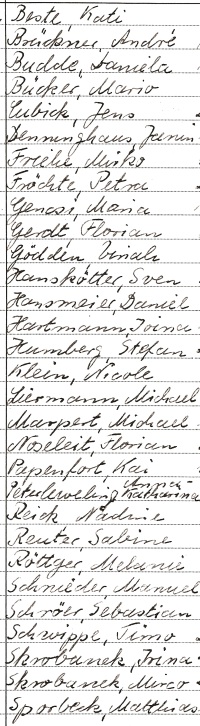 Beste, Kati
Brückner, André
Budde, Daniela
Bücker, Mario
Cubick, Jens
Denninghaus, Janin
Freihe, Mirko
Fröchte, Petra
Genosi, Maria
Gerdt, Florian
Gödden, Vinah
Hanskötter, Sven
Hansmeier, Daniel
Hartmann, Irina
Humberg, Stefan
Klein, Nicole
Liermann, Michael
Marpert, Michael
Noseleit, Florian
Papenfort, Kai
Peterleweling, Annika Katharina
Reick, Nadine
Reuter, Sabine
Röttger, Melanie
Schnieder, Manuel
Schröer, Sebastian
Schwippe, Timo
Skrobanek, Irina
Skrobanek, Mirco
Sporbeck, Matthias